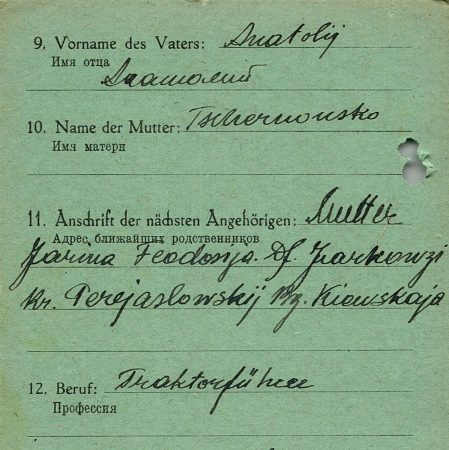 9. Vorname des Vaters: Anatolij
Имя отца
Анатолий
10. Name der Mutter: Tschernousko
Имя матери
11. Anschrift der nächsten Angehörigen: Mutter
Адрес ближайших родственников
Jarina Feodosja. Df. Jarkowzi
Kr. Perejaslowskij Bz. Kiewskaja
12. Beruf: Traktorführer
Профессия